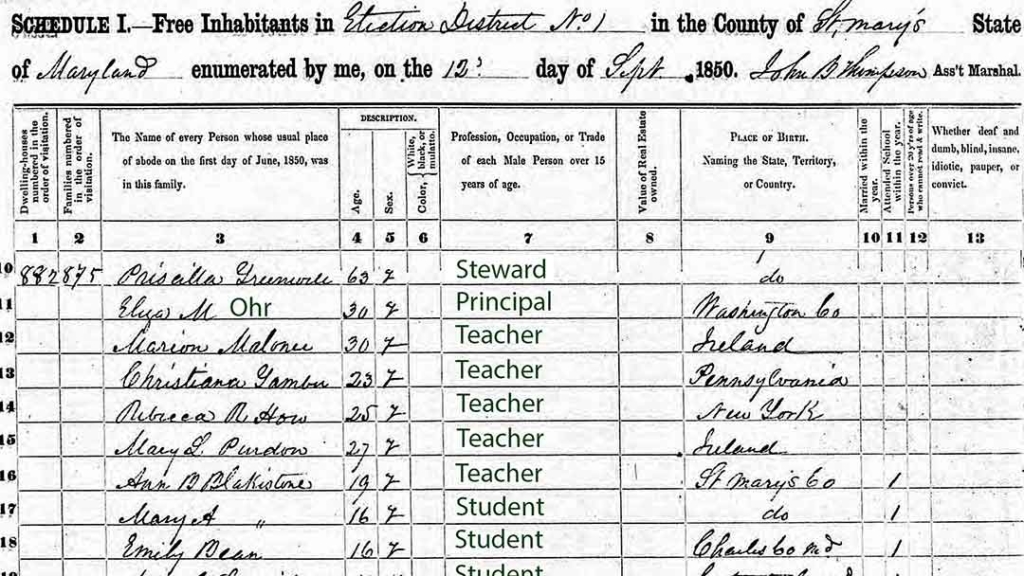 SCHEDULE I.—Free Inhabitants in Election District No. 1 in the County of St. mary's State
of Maryland enumerated by me, on the 12 day of Sept. 1850. John B Thompson Ass't Marshal.
Dwelling-houses numbered in the order of visitation.
Families numbered in the order of visitation.
The Name of every Person whose usual place
of abode on the first day of June, 1850, was
in this family.
DESCRIPTION.
Age.
Sex.
Color, { White, black, or mulatto.
Profession, Occupation, or Trade
of each Male Person over 15
years of age.
Value of Real Estate owned.
PLACE OF BIRTH.
Naming the State, Territory,
or Country.
Married within the year.
Attended School within the year.
Persons over 20 y'rs of age who cannot read & write.
Whether deaf and
dumb, blind, insane,
idiotic, pauper, or
convict.
1 2 3 4 5 6 7 8 9 10 11 12 13
10 882 875 Priscilla Greenwell 63 F Steward do
11 Eliza M Ohr 30 F Principal Washington Co
12 Marion Malonee 30 F Teacher Ireland
13 Christiana 23 F Teacher Pennsylvania
14 Rebecca R How 25 F Teacher New York
15 Mary L. Purdon 27 F Teacher Ireland
16 Ann B Blakistone 19 F Teacher St mary's Co 1
17 Mary A " 16 F Student do 1
18 Emily Bean 16 F Student Charles Co Md 1
Student